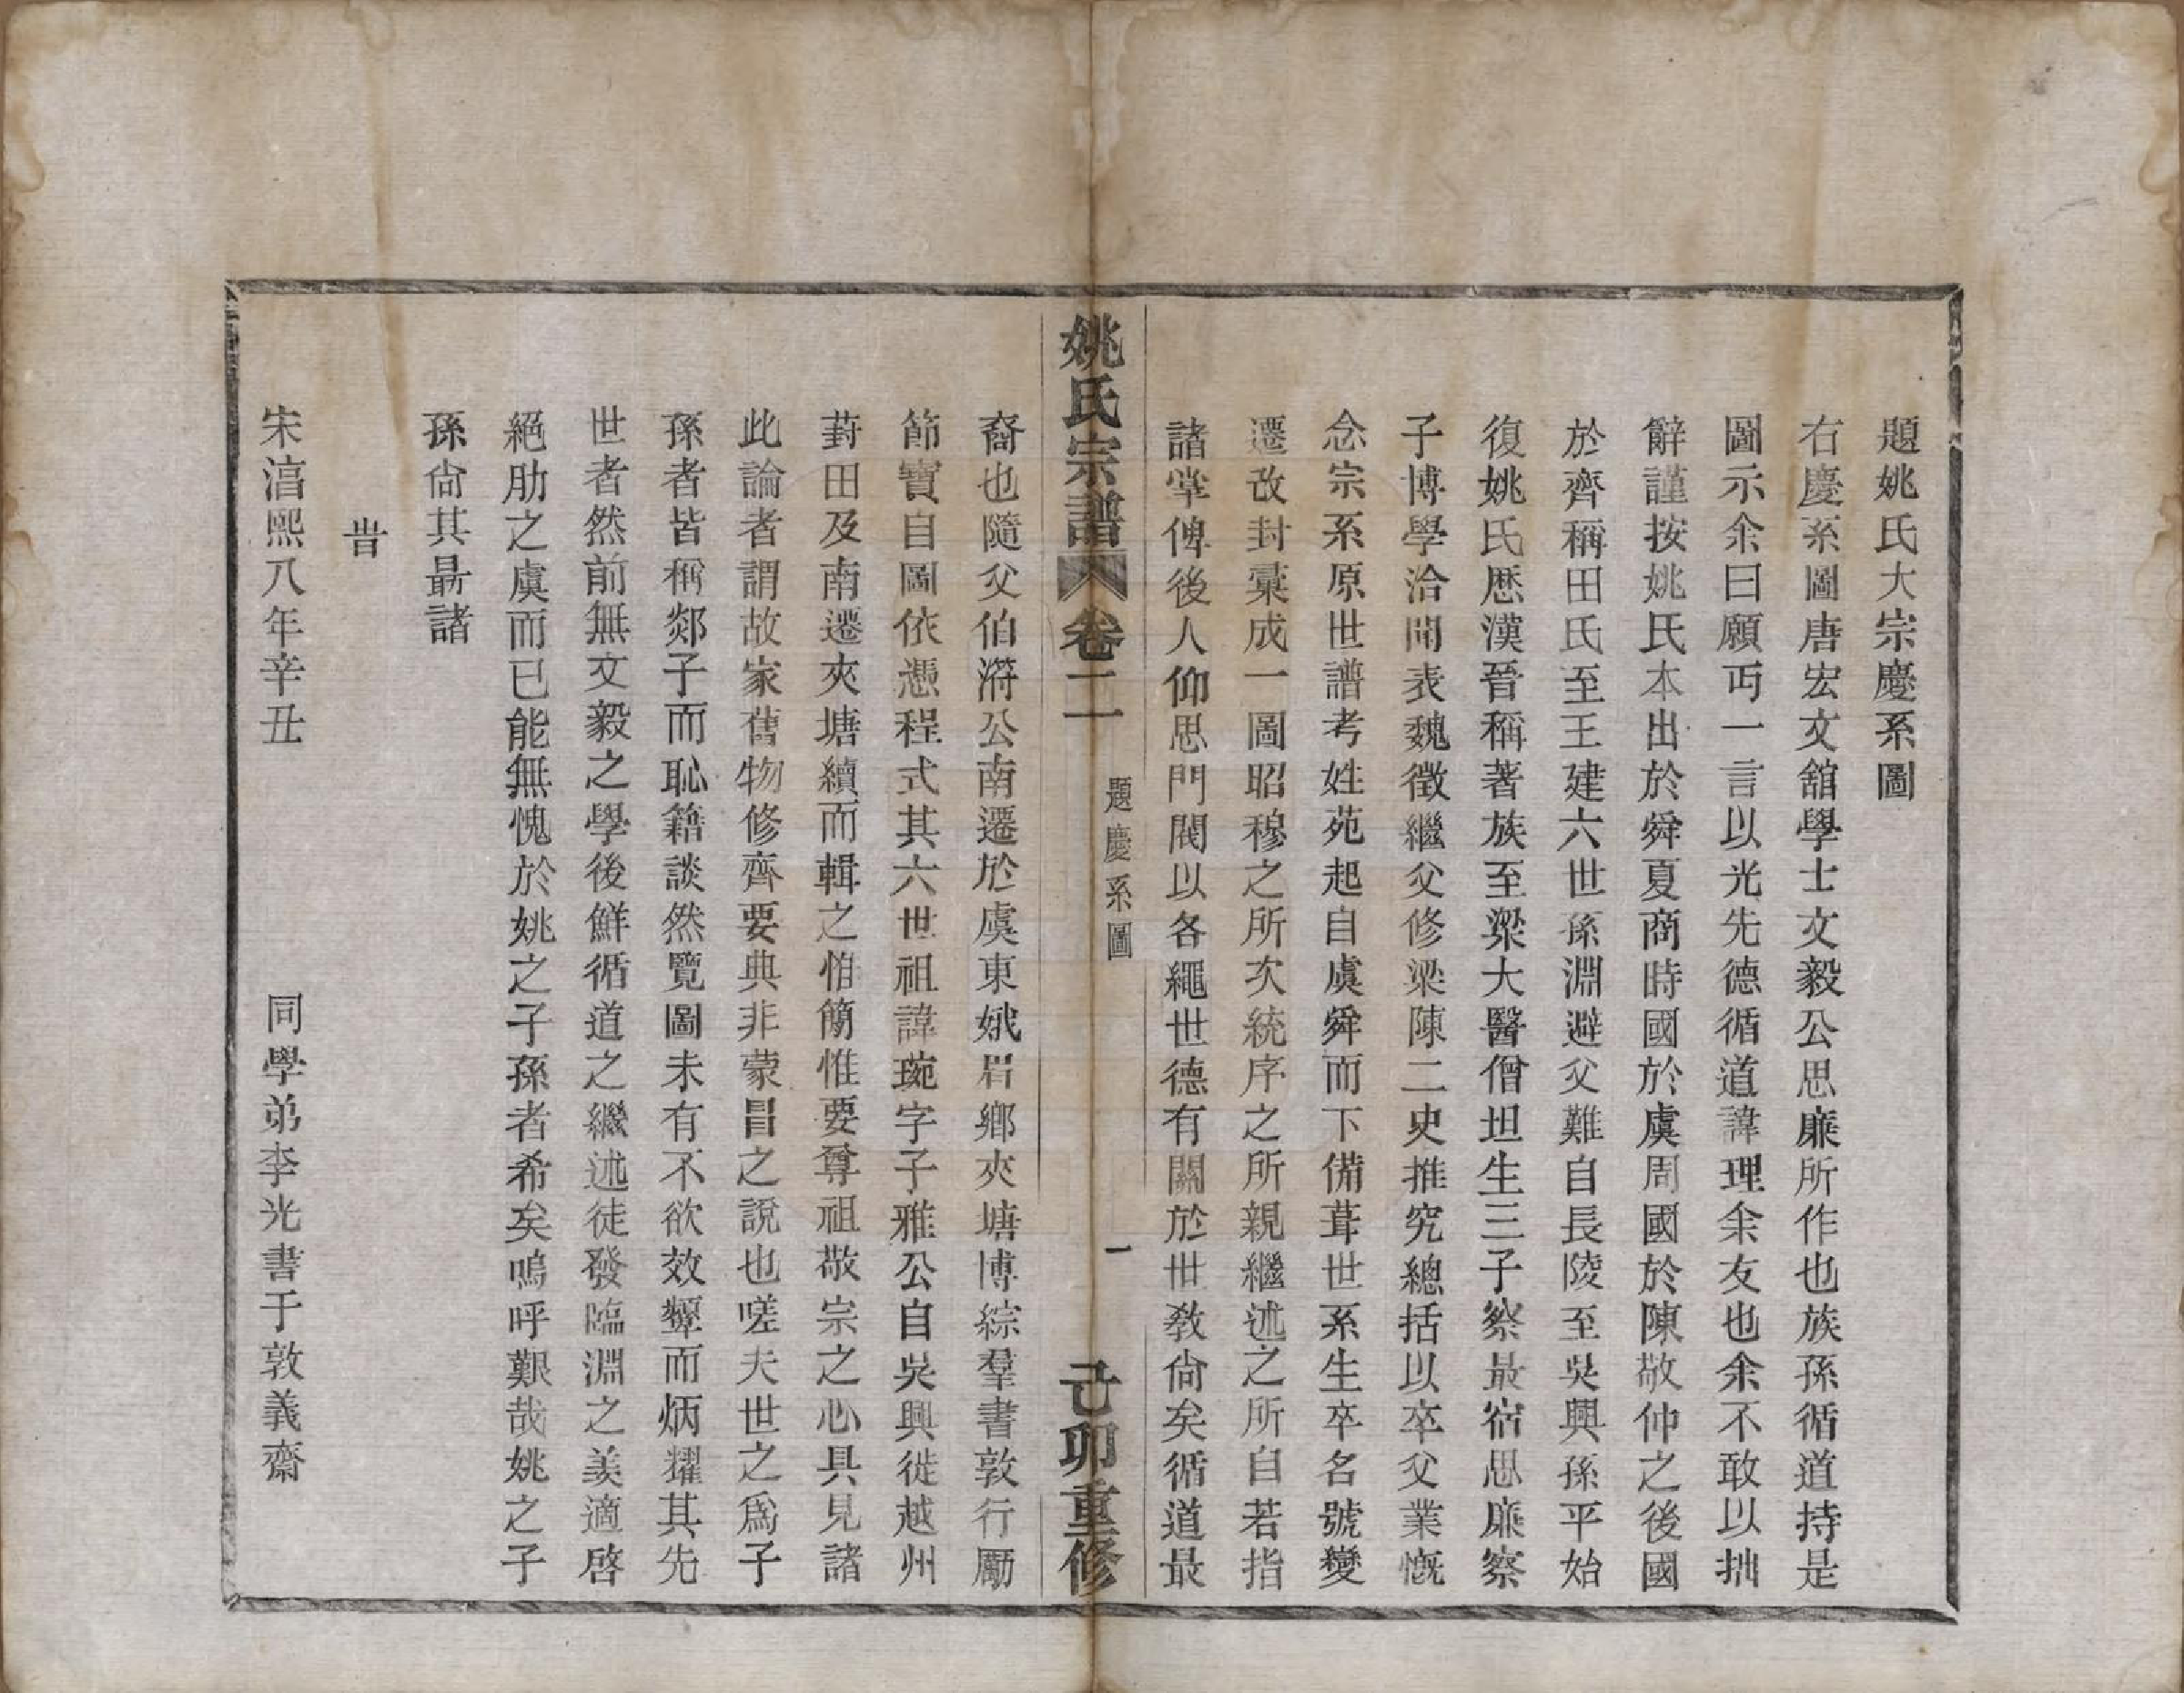 題姚氏大宗慶系圖
右慶系圖唐宏文舘學士文毅公思廉所作也族孫循道持是
圖示余曰願丐一言以光先德循道諱理余友也余不敢以拙
辭謹按姚氏本出於舜夏商時國於虞周國於陳敬仲之後國
於齊稱田氏至王建六世孫淵避父難自長陵至吳興孫平始
復姚氏歷漢晉稱著族至梁大醫僧坦生三子察最宿思廉察
子博學洽聞表魏徵繼父修梁陳二史推究總括以卒父業慨
念宗系原世譜考姓苑起自虞舜而下備葺世系生卒名號變
遷改封彙成一圖昭穆之所次統序之所親繼述之所自若指
諸掌俾後人仰思門閥以各繩世德有關於世教尙矣循道最
姚氏宗譜 卷二 題慶系圖 一 己卯重修
裔也隨父伯澣公南遷於虞東娥眉鄉夾塘博綜羣書敦行勵
節寶自圖依憑程式其六世祖諱琬字子雅公自吳興徙越州
葑田及南遷夾塘續而輯之惟簡惟要尊祖敬宗之心具見諸
此論者謂故家舊物修齊要典非蒙冒之說也嗟夫世之爲子
孫者皆稱郯子而恥籍談然覽圖未有不欲效顰而炳耀其先
世者然前無文毅之學後鮮循道之繼述徒發臨淵之羨適啓
絕肋之虞而已能無愧於姚之子孫者希矣嗚呼艱哉姚之子
孫尙其勗諸
旹
宋淳熙八年辛丑 同學弟李光書于敦義齋